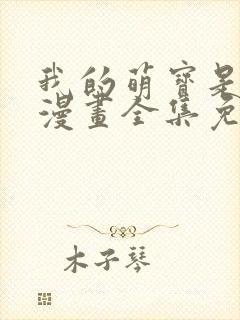 我的萌寶是
漫畫全集免
木子琴